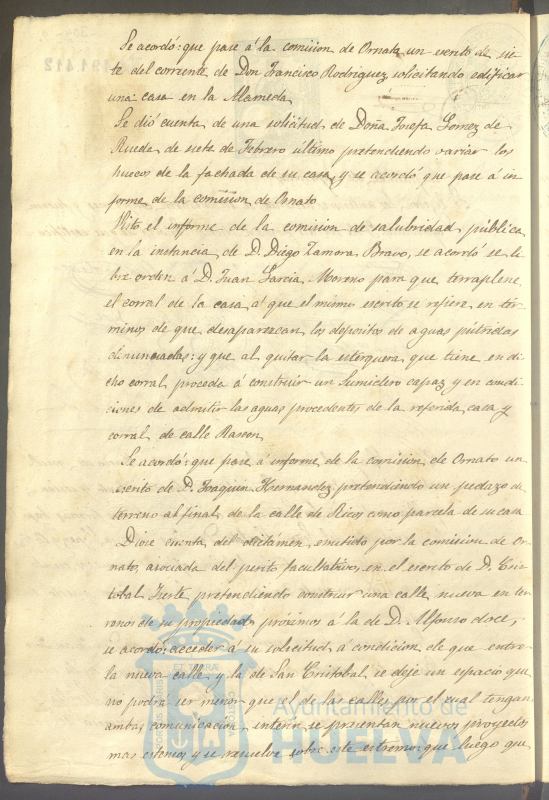 Se acordó: que pase á la comision de Ornato un escrito de sie-
te del corriente de Don Francisco Rodriguez solicitando edificar
una casa en la Alameda
Se dió cuenta de una solicitud de Doña Josefa Gomez de
Rueda de siete de Febrero último pretendiendo variar los
huecos de la fachada de su casa, y se acordó que pase á in-
forme de la comision de Ornato
Visto el informe de la comision de salubridad pública
en la instancia de D. Diego Zamora Bravo, se acordó se li-
bre orden á D. Juan Garcia Moreno para que terraplene
el corral de la casa, á que el mismo escrito se refiere, en tér-
minos de que desaparezcan los depósitos de aguas pútridas
denunciadas: y que al quitar la esterquera que tiene en di-
cho corral, proceda á construir un Sumidero capaz y en condi-
ciones de admitir las aguas procedentes de la referida casa y
corral de calle Rascon
Se acordó: que pase á informe de la comision de Ornato un
escrito de D. Joaquin Hernandez pretendiendo un pedazo de
terreno al final de la calle de Ricos como parcela de su casa
Diose cuenta del dictámen, emitido por la comision de Or-
nato, asociada del perito facultativo, en el escrito de D. Cris-
tobal pretendiendo construir una calle nueva en ter-
renos de su propiedad próximos á la de D. Alfonso doce,
se acordó: acceder á su solicitud á condicion de que entre
la nueva calle y la de San Cristobal, se deje un espacio que
no podrá ser menor que el de las calles por el cual tengan
ambas comunicacion, interin se presentan nuevos proyectos
mas estensos y se resuelve sobre este estremo: que luego que
Ayuntamiento de
HUELVA